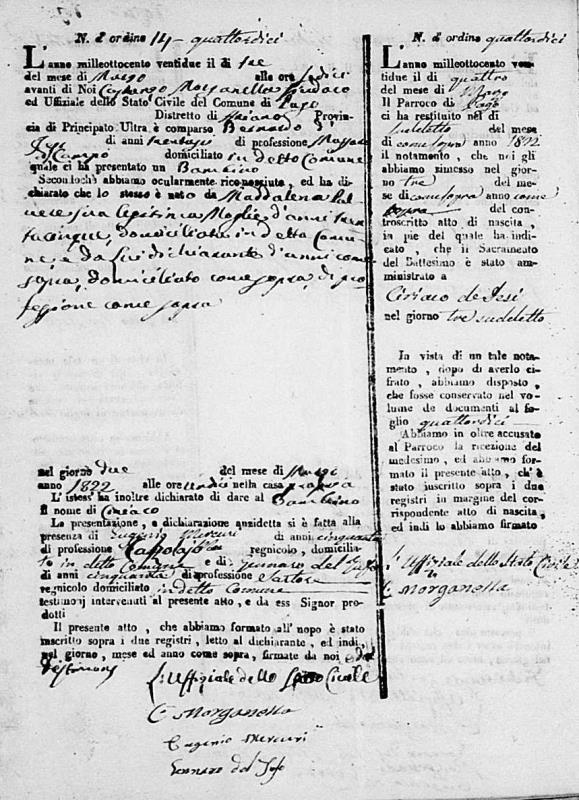 N. d'ordine 14 - quattordici
L'anno milleottocento ventidue il di tre
del mese di Maggio alle ore sedici
avanti di Noi Morganella Sindaco
ed Uffiziale dello Stato Civile del Comune di Lapio
Distretto di Ariano Provin-
cia di Principato Ultra è comparso Bernardo di
Jesi di anni di professione Massaro
di Campo domiciliato in detto Comune
quale ci ha presentato un Bambino
Secondochè abbiamo ocularmente riconosciuto, ed ha di-
chiarato che lo stesso è nato da Maddalena
legitima Moglie, d'anni
domiciliata in detta Comu-
ne, e da Lui dichiarante d'anni come
sopra, domiciliato come sopra, di pro-
fessione come sopra
nel giorno due del mese di
anno 1822 alle ore undici nella casa propria
L'istess' ha inoltre dichiarato di dare al Bambino
il nome di Ciriaco
La presentazione, e dichiarazione anzidetta si è fatta alla
presenza di Eugenio Mercuri di anni cinquanta
di professione regnicolo, domicilia-
to in detto Comune e di Gennaro del
di anni cinquanta di professione Sartore
regnicolo domiciliato in detto Comune
testimonj intervenuti al presente atto, e da ess Signor pro-
dotti
Il presente atto, che abbiamo formato all'uopo è stato
inscritto sopra i due registri, letto al dichiarante, ed indi,
nel giorno, mese ed anno come sopra, firmato da noi e dai
Testimonj
L'Uffiziale dello Stato Civile
C Morganella
Eugenio Mercuri
Gennaro del
N. d'ordine quattordici
L'anno milleottocento ven-
tidue il di quattro
del mese di Maggio
Il Parroco di Lapio
ci ha restituito nel di
sudetto del mese
di come sopra anno 1822
il notamento, che noi gli
abbiamo rimesso nel gior-
no tre del me-
se di come sopra anno come
sopra del con-
troscritto atto di nascita,
in piè del quale ha indi-
cato, che il Sacramento
del Battesimo è stato am-
ministrato a
Ciriaco de Jesi
nel giorno tre sudetto
In vista di un tale nota-
mento, dopo di averlo ci-
frato, abbiamo disposto,
che fosse conservato nel vo-
lume de documenti al fo-
glio quattordici
Abbiamo in oltre accusato
al Parroco la ricezione del
medesimo, ed abbiamo for-
mato il presente atto, ch'è
stato inscritto sopra i due
registri in margine del cor-
rispondente atto di nascita,
ed indi lo abbiamo firmato
L'Uffiziale dello Stato Civile
C Morganella